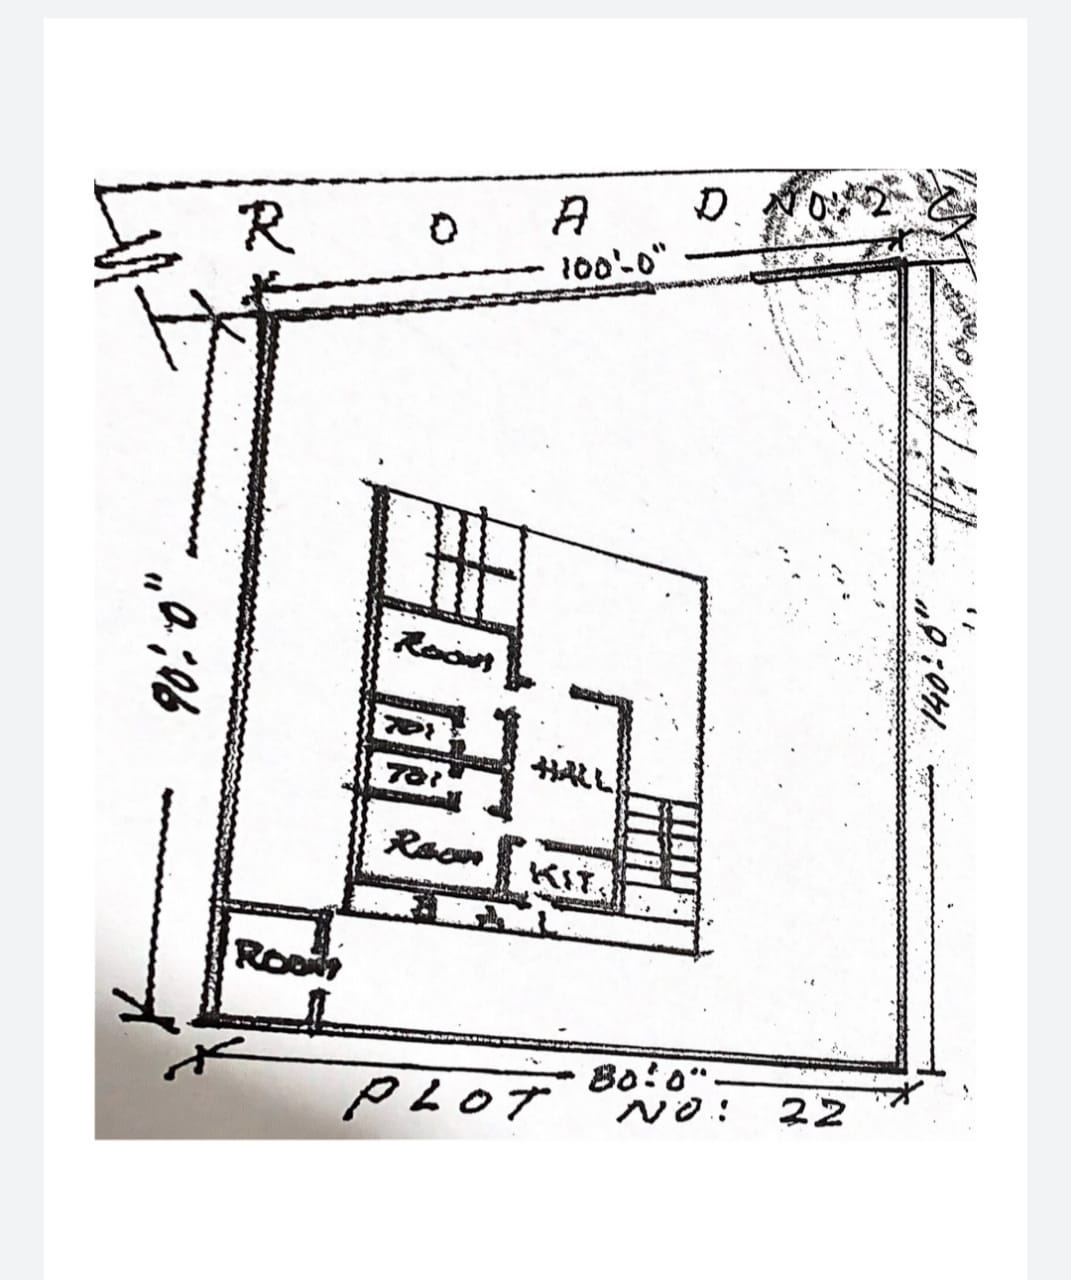 R O A D NO: 2
100'-0"
90'-0"
140'-0"
Room
TOI
TOI
HALL
Room
KIT.
ROOM
80'-0"
PLOT NO: 22